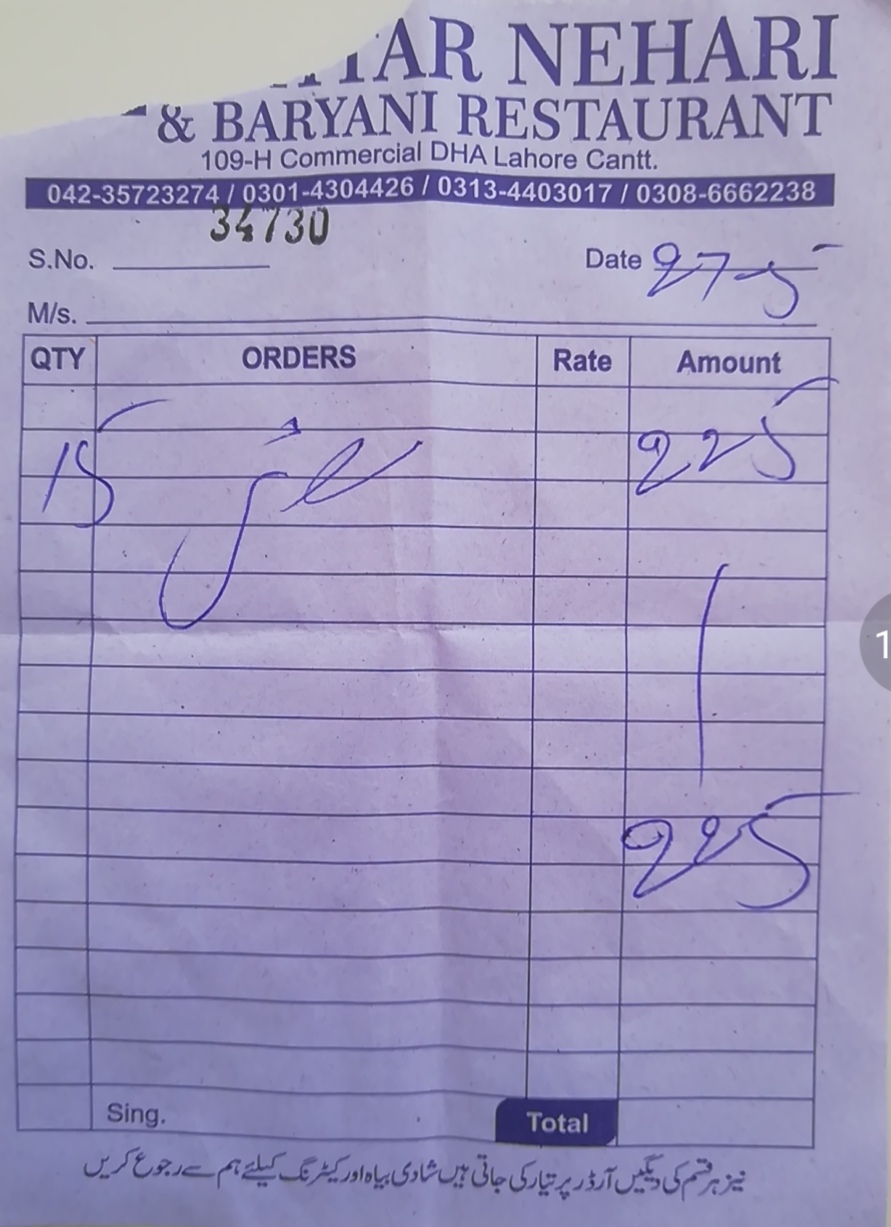 TAR NEHARI
& BARYANI RESTAURANT
109-H Commercial DHA Lahore Cantt.
042-35723274 / 0301-4304426 / 0313-4403017 / 0308-6662238
34730
S.No. Date 27-5
M/s.
QTY ORDERS Rate Amount
15 225
225
Sing. Total
نیز ہر قسم کی دیگیں آرڈر پر تیار کی جاتی ہیں شادی بیاہ اور کیٹرنگ کیلئے ہم سے رجوع کریں
1